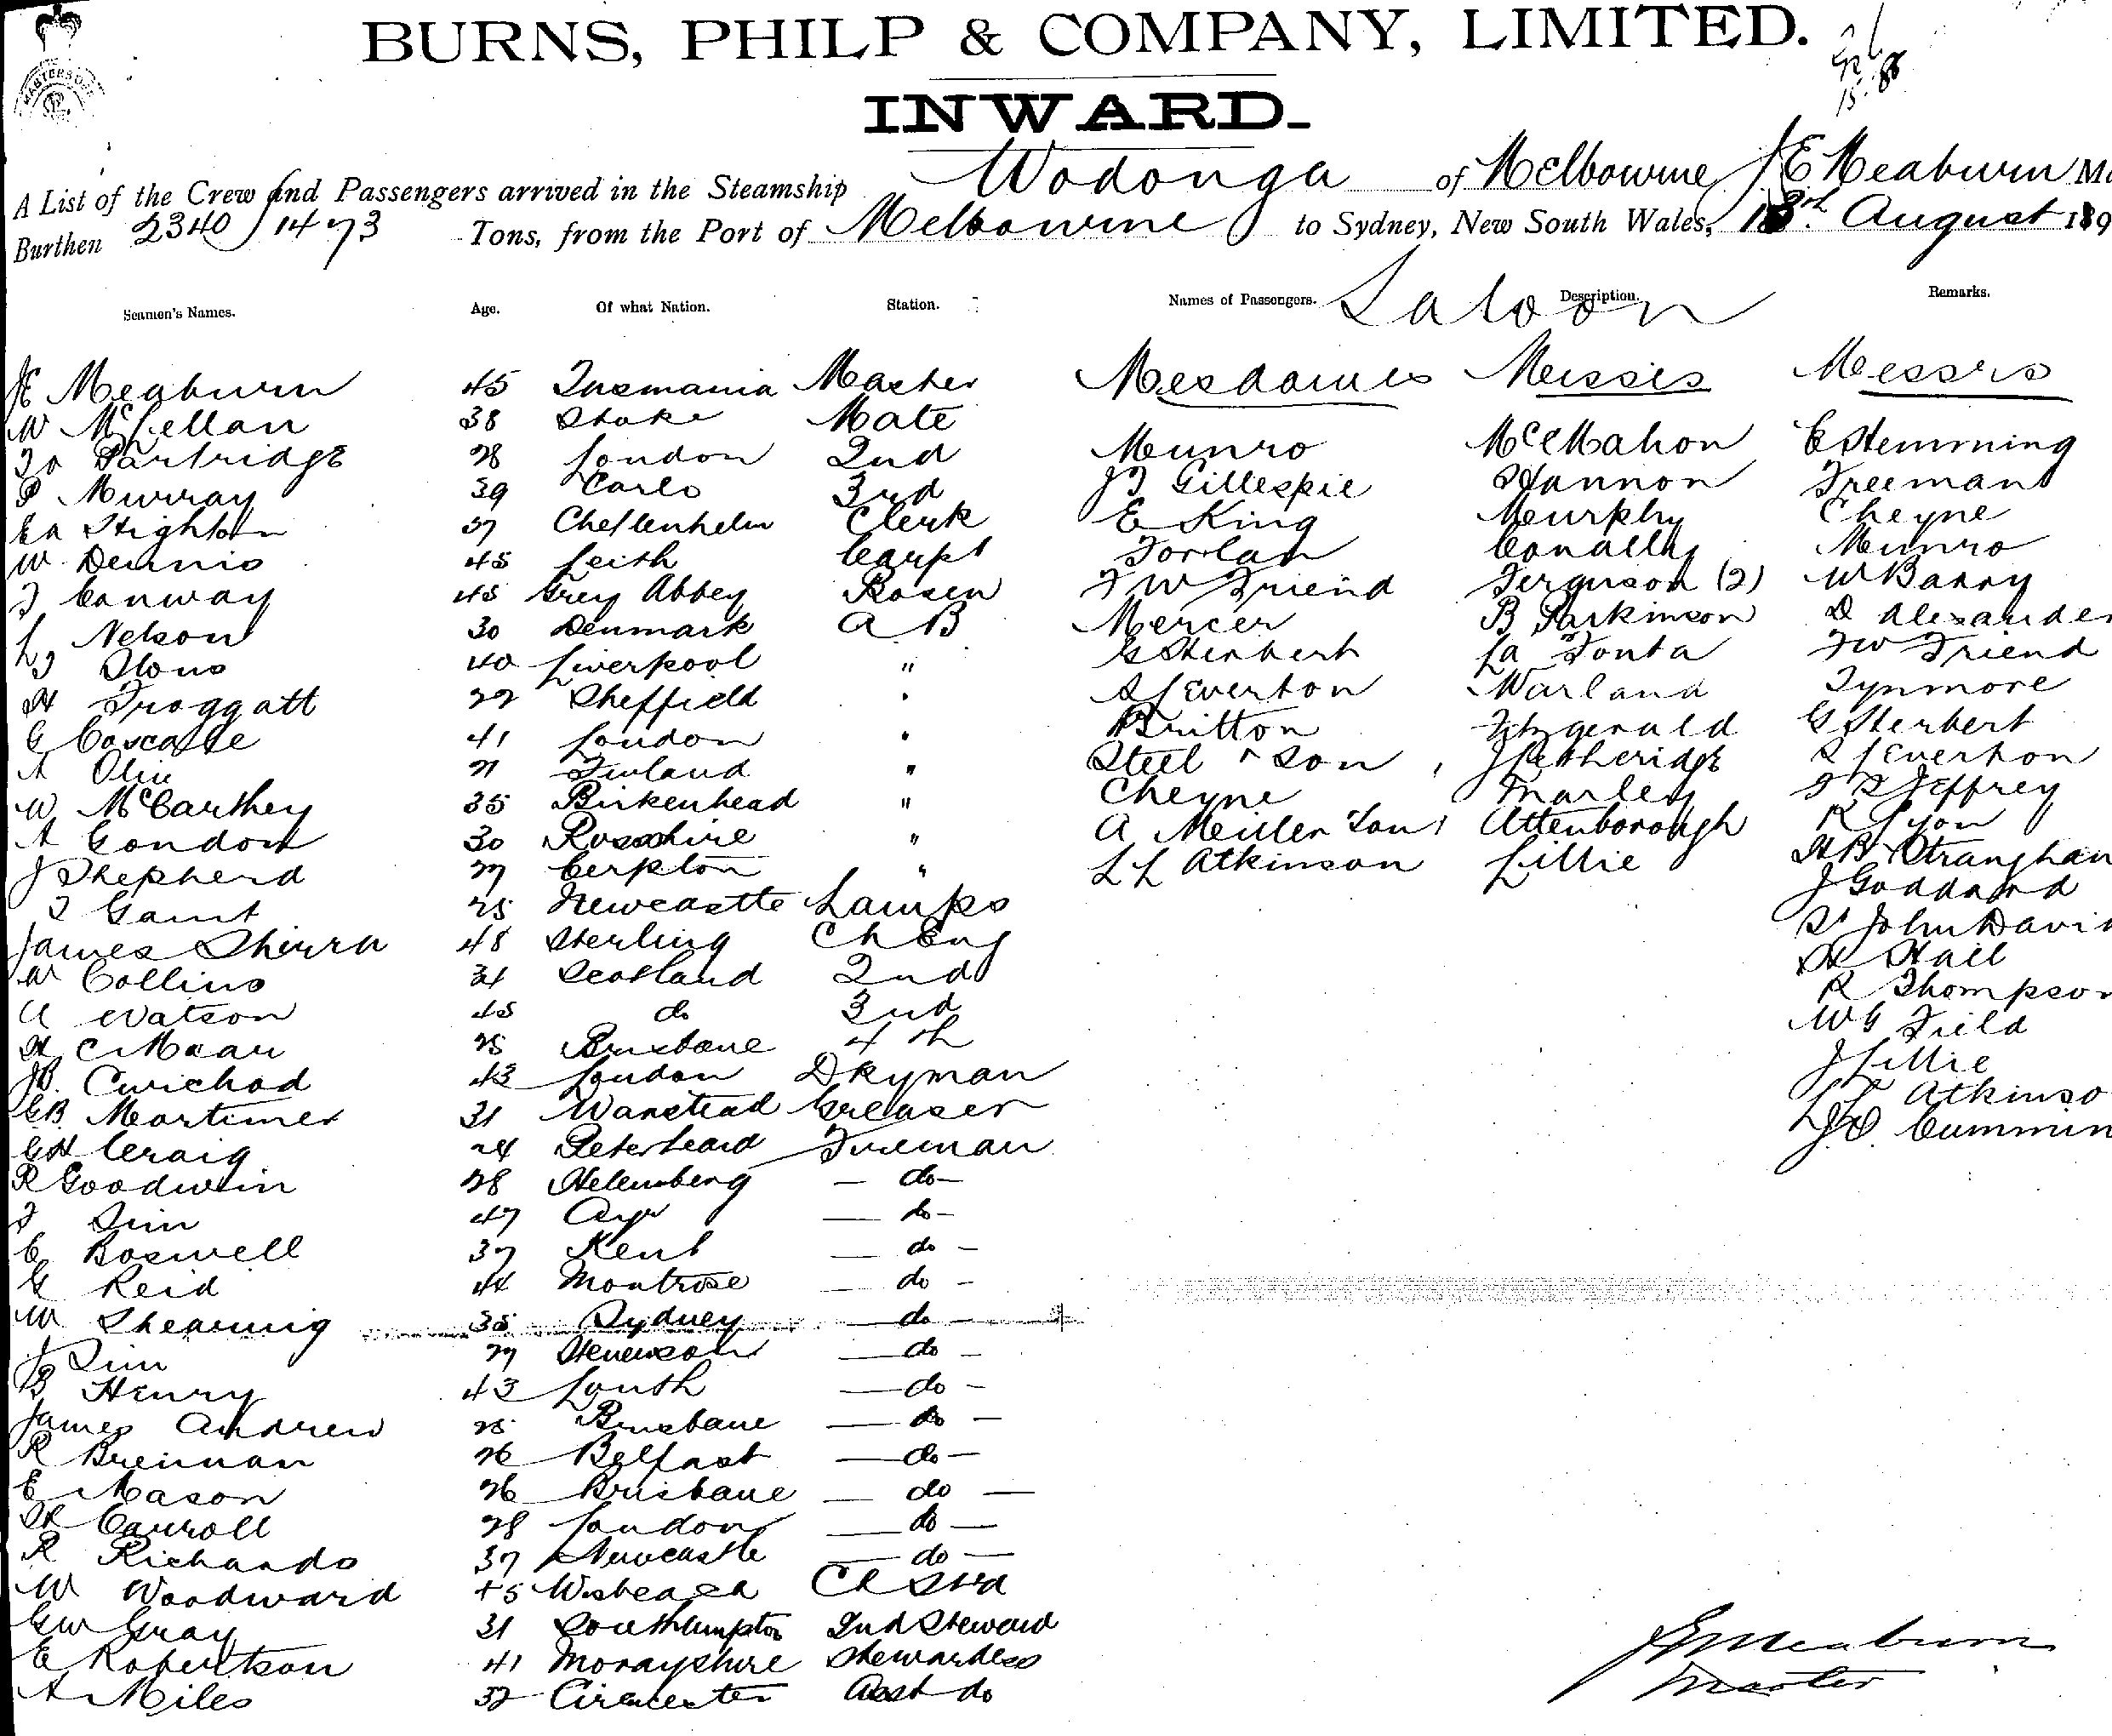 BURNS, PHILP & COMPANY, LIMITED.
INWARD.
A List of the Crew and Passengers arrived in the Steamship Wodonga of Melbourne JE Meaburn
Burthen 2340/1473 Tons, from the Port of Melbourne to Sydney, New South Wales, August 189
Seamen's Names. Age. Of what Nation. Station. Names of Passengers. Saloon Description. Remarks.
JE Meaburn 45 Tasmania Master Mesdames Misses Messrs
W McLellan 38 Stoke Mate Munro McMahon E Hemming
Partridge 28 London 2nd JT Gillespie Hannon Freeman
P Murray 39 3rd E King Murphy Cheyne
EA Highton 37 Cheltenhelm Clerk Conally Munro
W Dennis 45 Leith Carpt TW Friend Ferguson (2) W Barry
T Conway 45 Grey Abbey Bosen Mercer B Parkinson D Alexander
L Nelson 30 Denmark AB G Herbert FW Friend
40 Liverpool " S J Everton Warland Tynmore
H Froggatt 22 Sheffield " Britton Fitzgerald G Herbert
G 41 London " Steel & Son J Petheridge S J Everton
A Olin 21 Finland " Cheyne Marley Jeffrey
W McCarthey 35 Birkenhead " A Attenborough R Lyon
A Gondon 30 Rosshire " LL Atkinson Lillie HB Stranghan
J Shepherd 27 " J Goddard
T Gaint 25 Newcastle Lamps St John Davi
James Shirra 48 Sterling Ch Eng H Hall
W Collins 34 Scotland 2nd R Thompson
A Watson 45 do 3rd WG Field
H 25 Brisbane 4th J Lillie
JB. 43 London Dkyman LL Atkinso
GB Mortimer 31 Wanstead Greaser JC Cummin
GH Craig 24 Peterheard Fireman
R Goodwin 28 Helensberg do
Sim 47 Ayr do
C Boswell 37 Kent do
G Reid 44 Montrose do
W Shearing 35 Sydney do
J Sim 27 do
B Henry 43 Louth do
James Andrew 25 Brisbane do
R Brennan 26 Belfast do
E Mason 26 Brisbane do
H Carroll 28 London do
R Richards 37 Newcastle do
W Woodward 45 Wisbeach Ch Std
GW Gray 31 Southampton 2nd Steward
E Robertson 41 Morayshire Stewardess
A Miles 32 Cirencester Asst do
JE Meaburn
Master